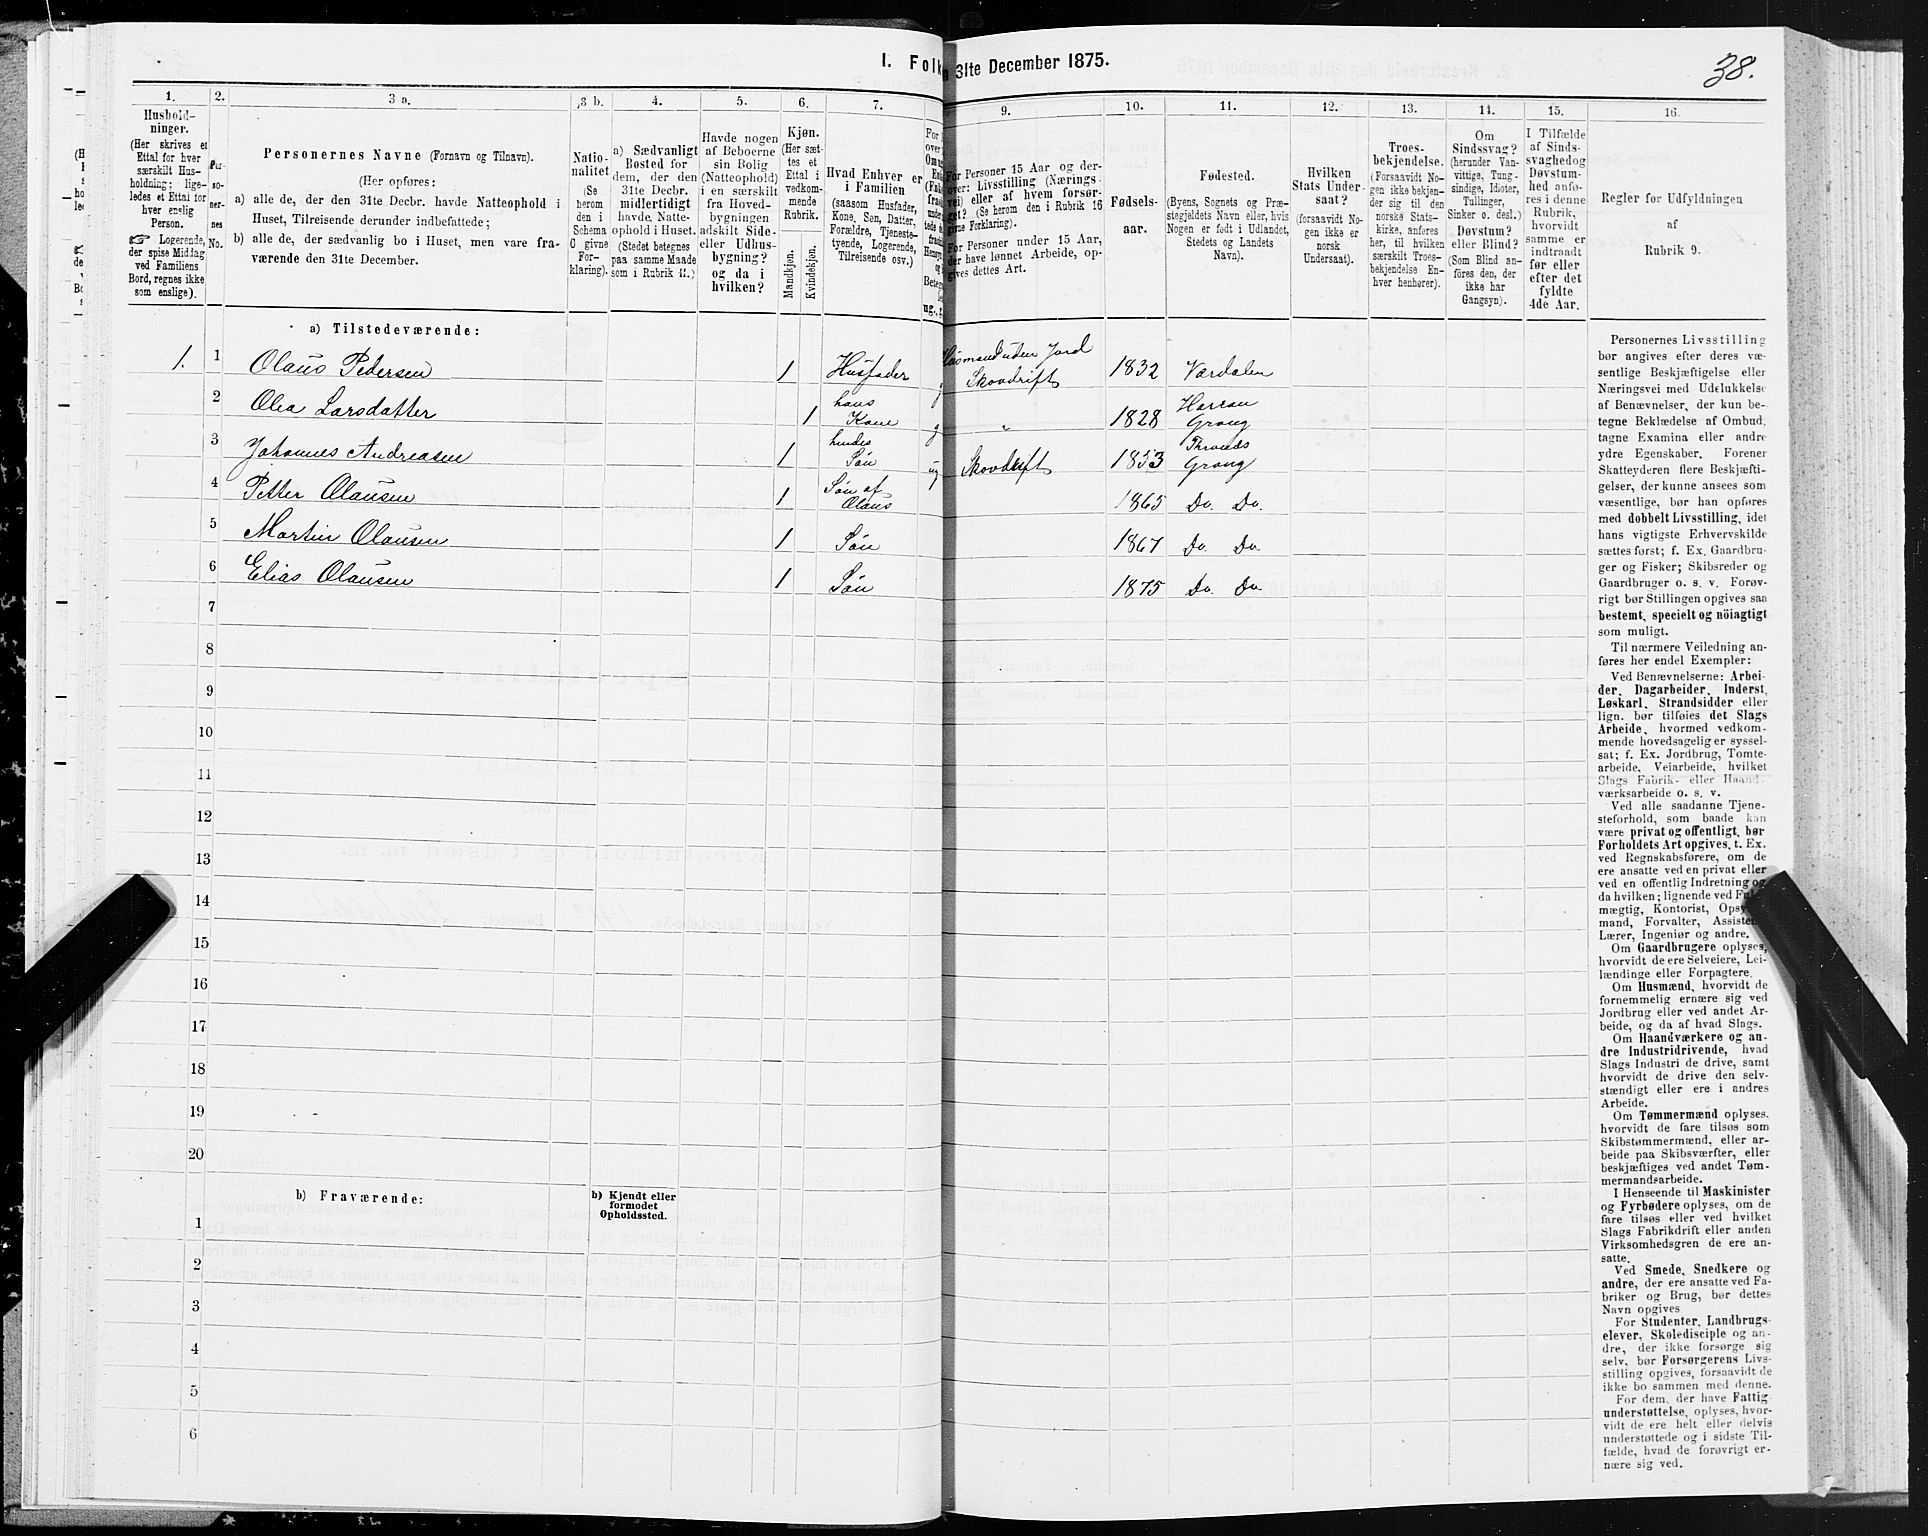 I. Folk
31te December 1875.
38.
1.
2.
3 a.
3 b.
4.
5.
6.
7.
9.
10.
11.
12.
13.
14.
15.
16.
Hushold-
ninger.
(Her skrives et
Ettal for hver
særskilt Hus-
holdning; lige-
ledes et Ettal for
hver enslig
Person.
☞ Logerende,
der spise Middag
ved Familiens
Bord, regnes ikke
som enslige).
Per-
so-
ner-
nes
No.
Personernes Navne (Fornavn og Tilnavn).
(Her opføres:
a) alle de, der den 31te Decbr. havde Natteophold i
Huset, Tilreisende derunder indbefattede;
b) alle de, der sædvanlig bo i Huset, men vare fra-
værende den 31te December.
Natio-
nalitet
(Se
herom
den i
Schema
C givne
For-
klaring).
a) Sædvanligt
Bosted for
dem, der den
31te Decbr.
midlertidigt
havde, Natte-
ophold i Huset.
(Stedet betegnes
paa samme Maade
som i Rubrik 11.)
Havde nogen
af Beboerne
sin Bolig
(Natteophold)
i en særskilt
fra Hoved-
bygningen
adskilt Side-
eller Udhus-
bygning?
og da i
hvilken?
Kjøn.
(Her sæt-
tes et
Ettal i
vedkom-
mende
Rubrik.
Mandkjøn.
Kvindekjøn.
Hvad Enhver er
i Familien
(saasom Husfader,
Kone, Søn, Datter,
Forældre, Tjeneste-
tyende, Logerende,
Tilreisende osv.)
For Personer 15 Aar og der-
over: Livsstilling (Nærings-
vei) eller af hvem forsør-
get? (Se herom den i Rubrik 16
givne Forklaring).
For Personer under 15 Aar,
der have lønnet Arbeide, op-
gives dettes Art.
Fødsels-
aar.
Fødested.
(Byens, Sognets og Præ-
stegjeldets Navn eller, hvis
Nogen er født i Udlandet,
Stedets og Landets
Navn).
Hvilken
Stats Under-
saat?
(forsaavidt No-
gen ikke er
norsk
Undersaat).
Troes-
bekjendelse.
(Forsaavidt No-
gen ikke bekjen-
der sig til den
norske Stats-
kirke, anføres
her, til hvilken
særskilt Troes-
bekjendelse En-
hver henhører).
Om
Sindssvag?
(herunder Van-
vittige, Tung-
sindige, Idioter,
Tullinger,
Sinker o. desl.)
Døvstum?
eller Blind?
(Som Blind an-
føres den, der
ikke har
Gangsyn).
I Tilfælde
af Sinds-
svaghedog
Døvstum-
hed anfø-
res i denne
Rubrik,
hvorvidt
samme er
indtraadt
før eller
efter det
fyldte
4de Aar.
Regler for Udfyldningen
af
Rubrik 9.
a) Tilstedeværende:
1. 1 Olaus Pedersen 1 Husfader g Husmand uden Jord Skovdrift 1832 Værdalen
2 Olea Larsdatter 1 hans Kone g „ 1828 Harran Grong
3 Johannes Andreasen 1 hendes Søn ug Skovdrift 1853 Thronds Grong
4 Petter Olausen 1 Søn af Olaus 1865 Do. Do.
5 Martin Olausen 1 Søn 1867 Do. Do.
6 Elias Olausen 1 Søn 1875 Do. Do.
7
8
9
10
11
12
13
14
15
16
17
18
19
20
b) Fraværende:
b) Kjendt eller
formodet
Opholdssted.
1
2
3
4
5
6
Personernes Livsstilling
bør angives efter deres væ-
sentlige Beskjæftigelse eller
Næringsvei med Udelukkelse
af Benævnelser, der kun be-
tegne Beklædelse af Ombud,
tagne Examina eller andre
ydre Egenskaber. Forener
Skatteyderen flere Beskjæfti-
gelser, der kunne ansees som
væsentlige, bør han opføres
med dobbelt Livsstilling, idet
hans vigtigste Erhvervskilde
sættes først; f. Ex. Gaardbru-
ger og Fisker; Skibsreder og
Gaardbruger o. s. v. Forøv-
rigt bør Stillingen opgives saa
bestemt, specielt og nöiagtigt
som muligt.
Til nærmere Veiledning an-
føres her endel Exempler:
Ved Benævnelserne: Arbei-
der, Dagarbeider, Inderst,
Løskarl, Strandsidder eller
lign. bør tilføies det Slags
Arbeide, hvormed vedkom-
mende hovedsagelig er syssel-
sat; f. Ex. Jordbrug, Tomte-
arbeide, Veiarbeide, hvilket
Slags Fabrik- eller Haand-
værksarbeide o. s. v.
Ved alle saadanne Tjene-
steforhold, som baade kan
være privat og offentligt, bør
Forholdets Art opgives, t. Ex.
ved Regnskabsførere, om de
ere ansatte ved en privat eller
ved en offentlig Indretning og
da hvilken; lignende ved Fuld-
mægtig, Kontorist, Opsyns-
mand, Forvalter, Assistent,
Lærer, Ingeniør og andre.
Om Gaardbrugere oplyses,
hvorvidt de ere Selveiere, Lei-
lændinge eller Forpagtere.
Om Husmænd, hvorvidt de
fornemmelig ernære sig ved
Jordbrug eller ved andet Ar-
beide, og da af hvad Slags.
Om Haandværkere og an-
dre Industridrivende, hvad
Slags Industri de drive, samt
hvorvidt de drive den selv-
stændigt eller ere i andres
Arbeide.
Om Tømmermænd oplyses.
hvorvidt de fare tilsøs som
Skibstømmermænd, eller ar-
beide paa Skibsværfter, eller
beskjæftiges ved andet Tøm-
mermandsarbeide.
I Henseende til Maskinister
og Fyrbødere oplyses, om de
fare tilsøs eller ved hvilket
Slags Fabrikdrift eller anden
Virksomhedsgren de ere an-
satte.
Ved Smede, Snedkere og
andre, der ere ansatte ved Fa-
briker og Brug, bør dettes
Navn opgives
For Studenter, Landbrugs-
elever, Skoledisciple og an-
dre, der ikke forsørge sig
selv, bør Forsørgerens Livs-
stilling opgives, forsaavidt de
ikke bo sammen med denne.
For dem, der have Fattig-
understøttelse, oplyses, hvor-
vidt de ere helt eller delvis
understøttede og i sidste Til-
fælde, hvad de forøvrigt er-
nære sig ved.